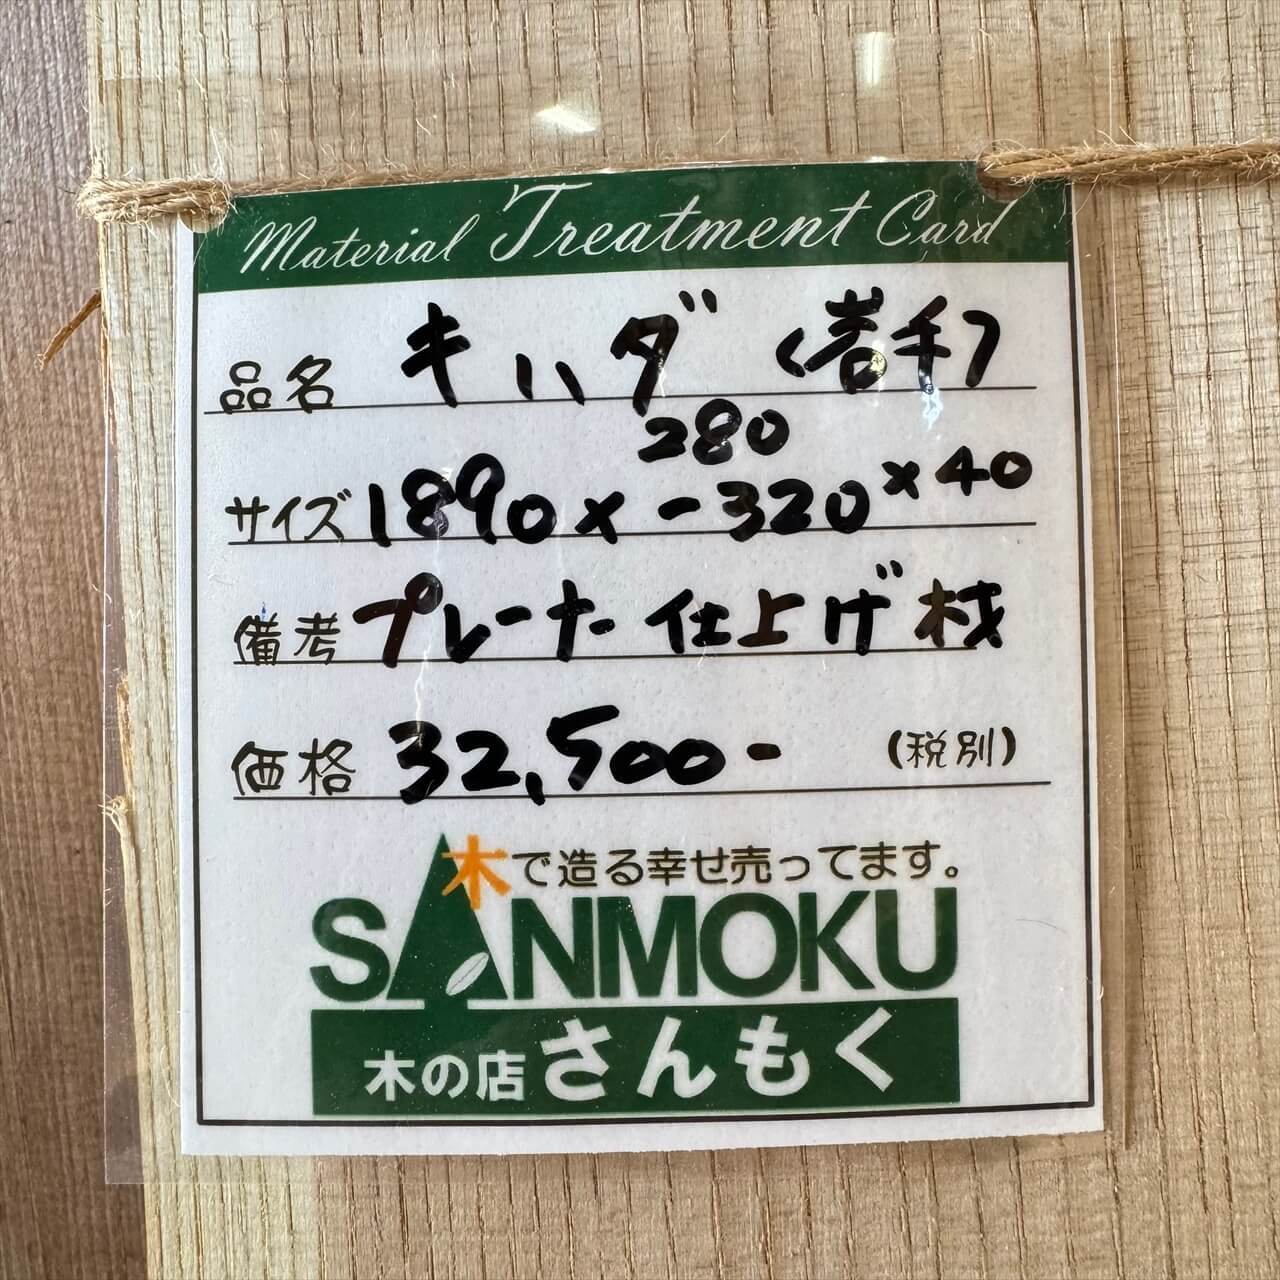 Material Treatment Card
品名 キハダ (岩手)
280
サイズ 1890×-320×40
備考 プレーナー仕上げ材
価格 32,500- (税別)
木で造る幸せ売ってます。
SANMOKU
木の店 さんもく